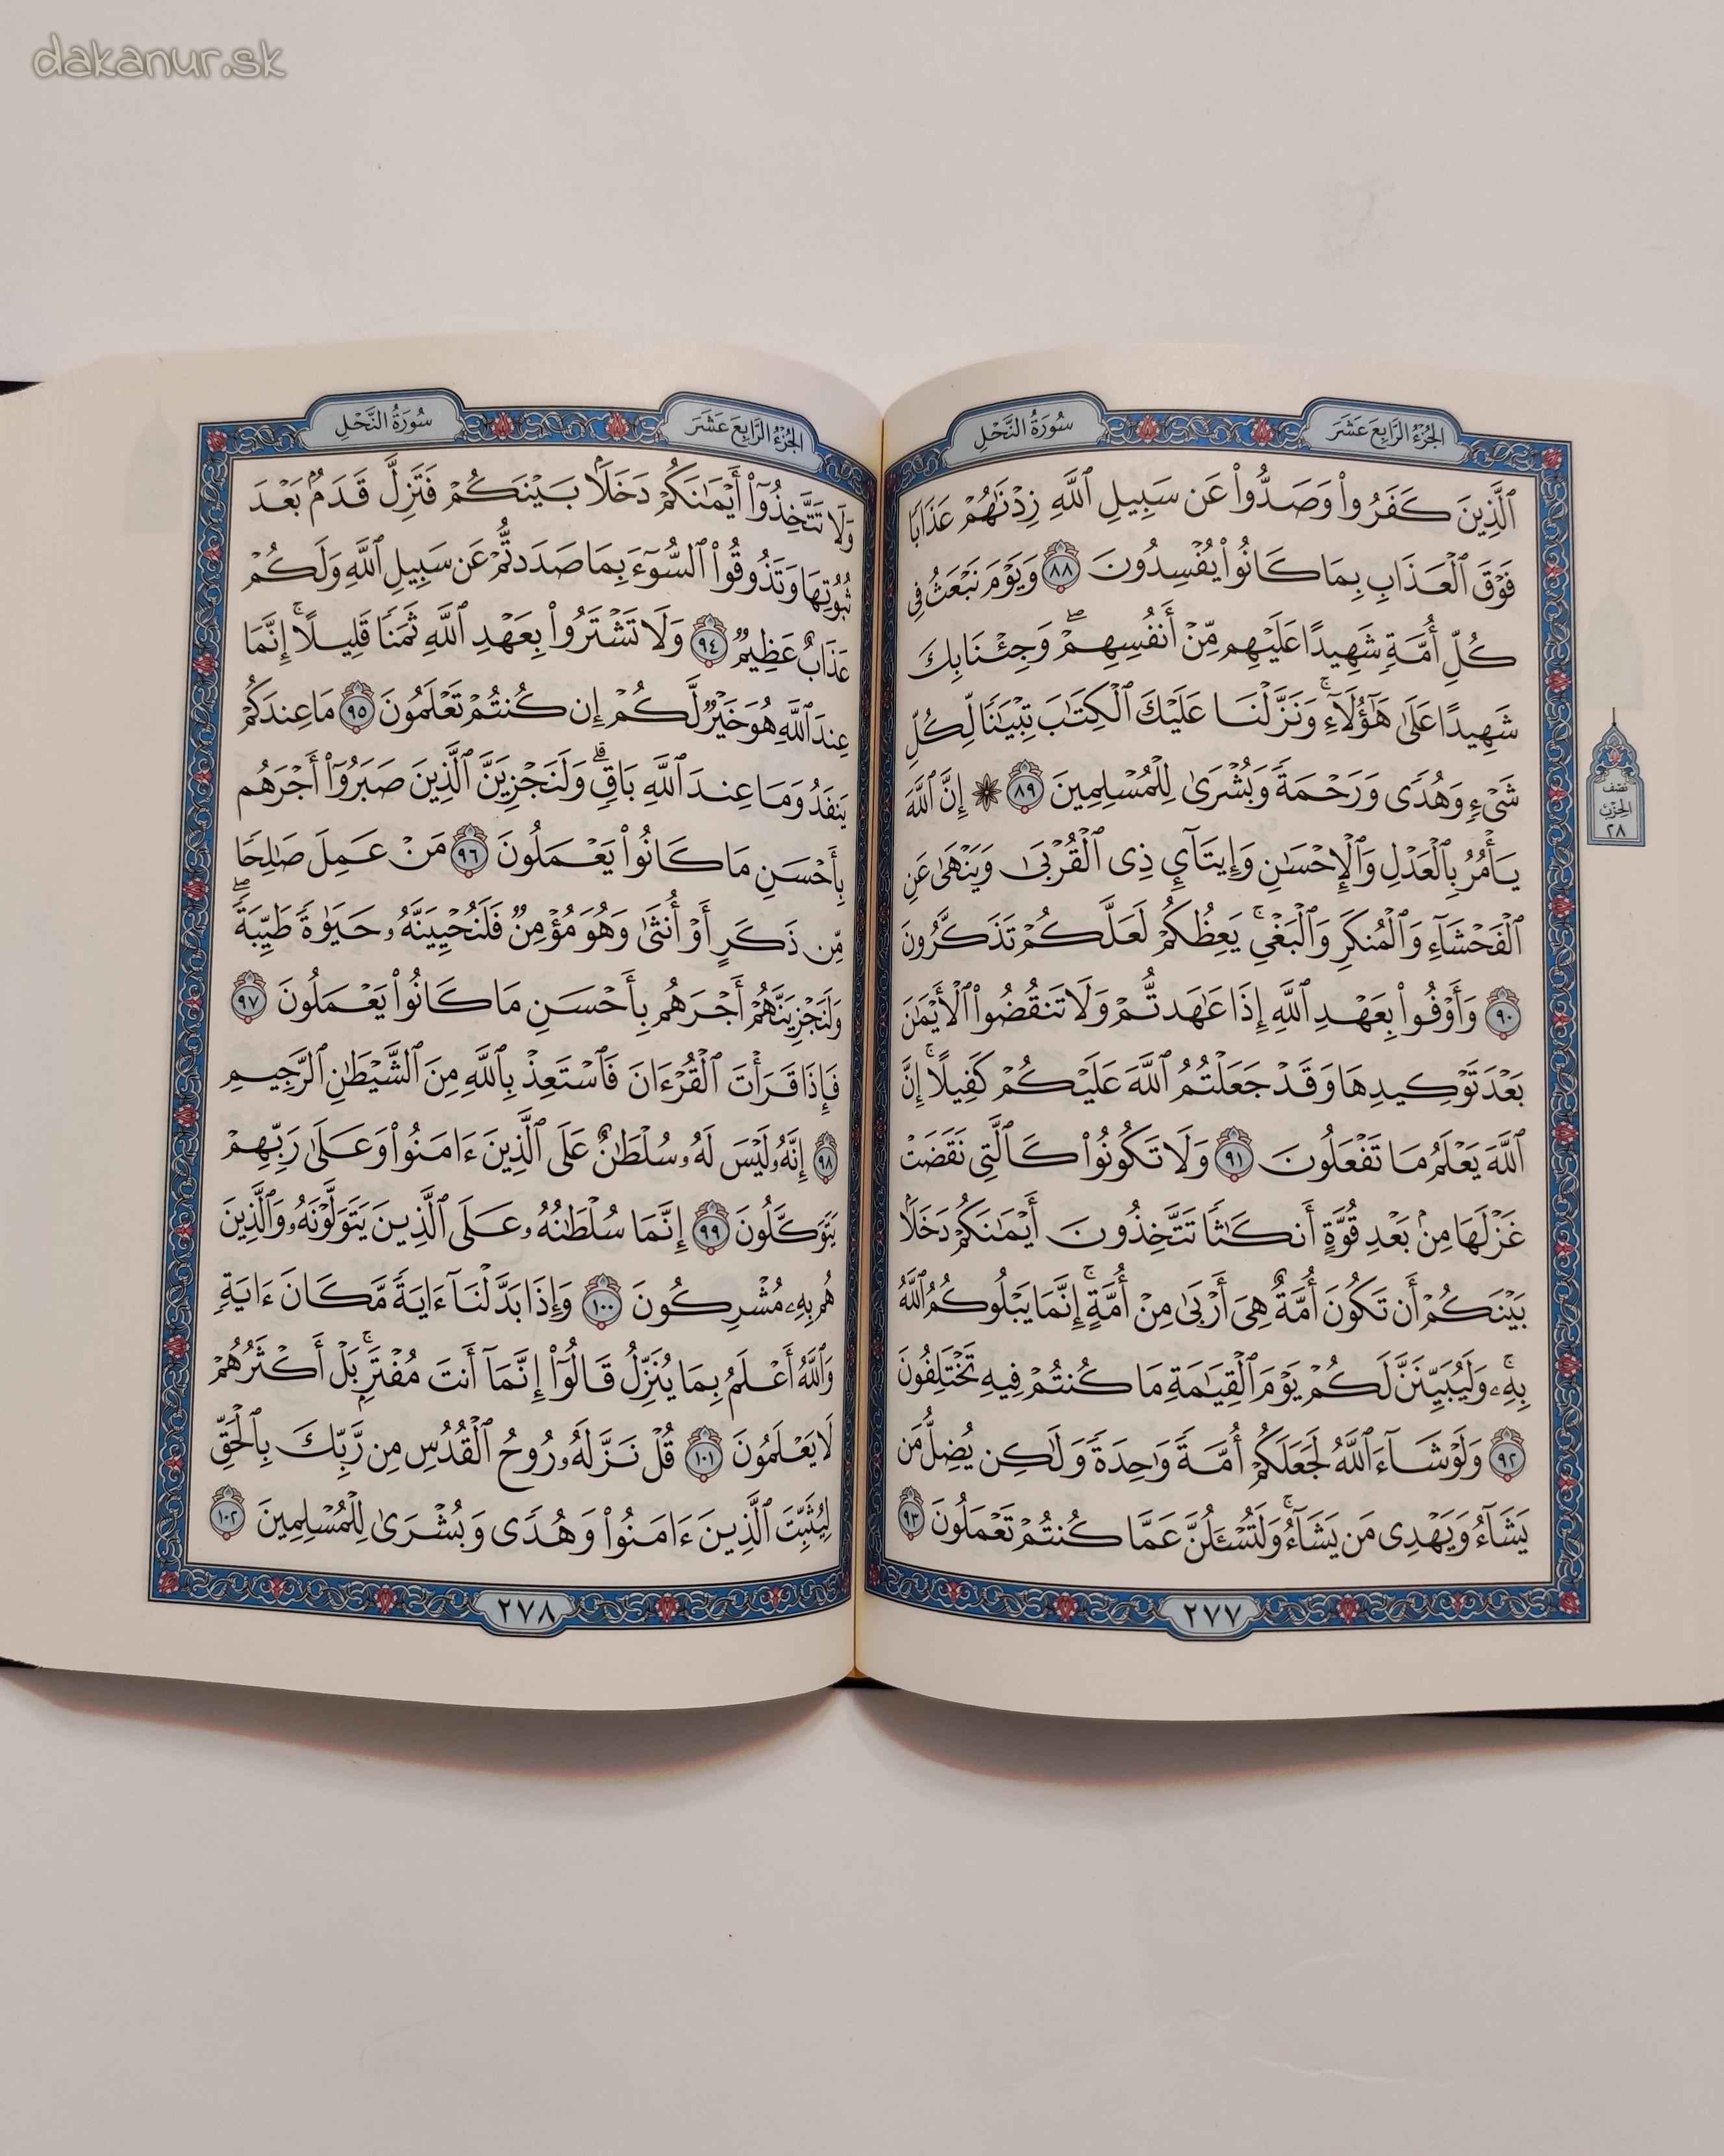 dakanur.sk
الجُزْءُ الرَّابِعَ عَشَرَ
سُورَةُ النَّحْلِ
ٱلَّذِينَ كَفَرُواْ وَصَدُّواْ عَن سَبِيلِ ٱللَّهِ زِدْنَٰهُمْ عَذَابًا
فَوْقَ ٱلْعَذَابِ بِمَا كَانُواْ يُفْسِدُونَ ٨٨ وَيَوْمَ نَبْعَثُ فِى
كُلِّ أُمَّةٍ شَهِيدًا عَلَيْهِم مِّنْ أَنفُسِهِمْۖ وَجِئْنَا بِكَ
شَهِيدًا عَلَىٰ هَٰٓؤُلَآءِۚ وَنَزَّلْنَا عَلَيْكَ ٱلْكِتَٰبَ تِبْيَٰنًا لِّكُلِّ
شَىْءٍ وَهُدًى وَرَحْمَةً وَبُشْرَىٰ لِلْمُسْلِمِينَ ٨٩ ۞ إِنَّ ٱللَّهَ
يَأْمُرُ بِٱلْعَدْلِ وَٱلْإِحْسَٰنِ وَإِيتَآئِ ذِى ٱلْقُرْبَىٰ وَيَنْهَىٰ عَنِ
ٱلْفَحْشَآءِ وَٱلْمُنكَرِ وَٱلْبَغْىِۚ يَعِظُكُمْ لَعَلَّكُمْ تَذَكَّرُونَ
٩٠ وَأَوْفُواْ بِعَهْدِ ٱللَّهِ إِذَا عَٰهَدتُّمْ وَلَا تَنقُضُواْ ٱلْأَيْمَٰنَ
بَعْدَ تَوْكِيدِهَا وَقَدْ جَعَلْتُمُ ٱللَّهَ عَلَيْكُمْ كَفِيلًاۚ إِنَّ
ٱللَّهَ يَعْلَمُ مَا تَفْعَلُونَ ٩١ وَلَا تَكُونُواْ كَٱلَّتِى نَقَضَتْ
غَزْلَهَا مِنۢ بَعْدِ قُوَّةٍ أَنكَٰثًا تَتَّخِذُونَ أَيْمَٰنَكُمْ دَخَلًۢا
بَيْنَكُمْ أَن تَكُونَ أُمَّةٌ هِىَ أَرْبَىٰ مِنْ أُمَّةٍۚ إِنَّمَا يَبْلُوكُمُ ٱللَّهُ
بِهِۦۚ وَلَيُبَيِّنَنَّ لَكُمْ يَوْمَ ٱلْقِيَٰمَةِ مَا كُنتُمْ فِيهِ تَخْتَلِفُونَ
٩٢ وَلَوْ شَآءَ ٱللَّهُ لَجَعَلَكُمْ أُمَّةً وَٰحِدَةً وَلَٰكِن يُضِلُّ مَن
يَشَآءُ وَيَهْدِى مَن يَشَآءُۚ وَلَتُسْـَٔلُنَّ عَمَّا كُنتُمْ تَعْمَلُونَ ٩٣
٢٧٧
نصف
الحزب
٢٨
الجُزْءُ الرَّابِعَ عَشَرَ
سُورَةُ النَّحْلِ
وَلَا تَتَّخِذُوٓاْ أَيْمَٰنَكُمْ دَخَلًۢا بَيْنَكُمْ فَتَزِلَّ قَدَمٌۢ بَعْدَ
ثُبُوتِهَا وَتَذُوقُواْ ٱلسُّوٓءَ بِمَا صَدَدتُّمْ عَن سَبِيلِ ٱللَّهِ وَلَكُمْ
عَذَابٌ عَظِيمٌ ٩٤ وَلَا تَشْتَرُواْ بِعَهْدِ ٱللَّهِ ثَمَنًا قَلِيلًاۚ إِنَّمَا
عِندَ ٱللَّهِ هُوَ خَيْرٌ لَّكُمْ إِن كُنتُمْ تَعْلَمُونَ ٩٥ مَا عِندَكُمْ
يَنفَدُ وَمَا عِندَ ٱللَّهِ بَاقٍۗ وَلَنَجْزِيَنَّ ٱلَّذِينَ صَبَرُوٓاْ أَجْرَهُم
بِأَحْسَنِ مَا كَانُواْ يَعْمَلُونَ ٩٦ مَنْ عَمِلَ صَٰلِحًا
مِّن ذَكَرٍ أَوْ أُنثَىٰ وَهُوَ مُؤْمِنٌ فَلَنُحْيِيَنَّهُۥ حَيَوٰةً طَيِّبَةًۖ
وَلَنَجْزِيَنَّهُمْ أَجْرَهُم بِأَحْسَنِ مَا كَانُواْ يَعْمَلُونَ ٩٧
فَإِذَا قَرَأْتَ ٱلْقُرْءَانَ فَٱسْتَعِذْ بِٱللَّهِ مِنَ ٱلشَّيْطَٰنِ ٱلرَّجِيمِ
٩٨ إِنَّهُۥ لَيْسَ لَهُۥ سُلْطَٰنٌ عَلَى ٱلَّذِينَ ءَامَنُواْ وَعَلَىٰ رَبِّهِمْ
يَتَوَكَّلُونَ ٩٩ إِنَّمَا سُلْطَٰنُهُۥ عَلَى ٱلَّذِينَ يَتَوَلَّوْنَهُۥ وَٱلَّذِينَ
هُم بِهِۦ مُشْرِكُونَ ١٠٠ وَإِذَا بَدَّلْنَآ ءَايَةً مَّكَانَ ءَايَةٍ
وَٱللَّهُ أَعْلَمُ بِمَا يُنَزِّلُ قَالُوٓاْ إِنَّمَآ أَنتَ مُفْتَرٍۭۚ بَلْ أَكْثَرُهُمْ
لَا يَعْلَمُونَ ١٠١ قُلْ نَزَّلَهُۥ رُوحُ ٱلْقُدُسِ مِن رَّبِّكَ بِٱلْحَقِّ
لِيُثَبِّتَ ٱلَّذِينَ ءَامَنُواْ وَهُدًى وَبُشْرَىٰ لِلْمُسْلِمِينَ ١٠٢
٢٧٨